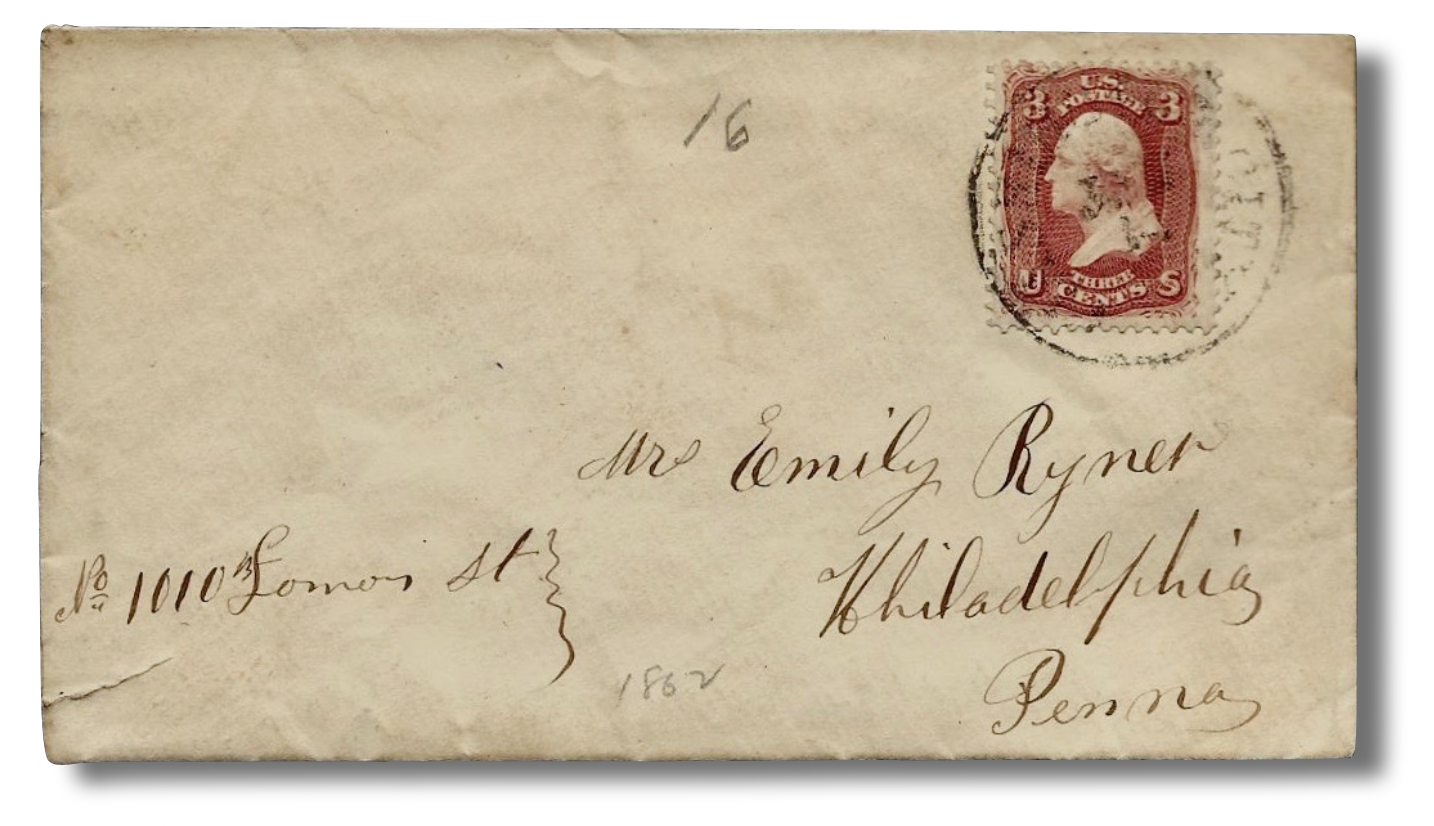 16
3 U.S. POSTAGE 3
U THREE CENTS S
Mrs Emily Ryner
No 1010 St
Philadelphia
Penna
1862